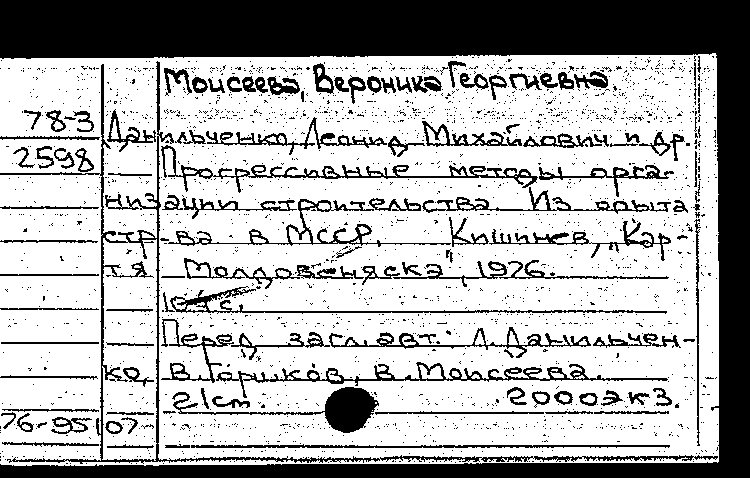 Моисеева, Вероника Георгиевна.
78-3
Данильченко, Леонид Михайлович и др.
2598
Прогрессивные методы орга-
низации строительства. Из опыта
стр-ва в МССР. Кишинев, „Кар-
тя Молдовеняскэ", 1976.
с.
Перед загл. авт.: Л. Данильчен-
ко, В. Горшков, В. Моисеева.
2000экз.
76-95107